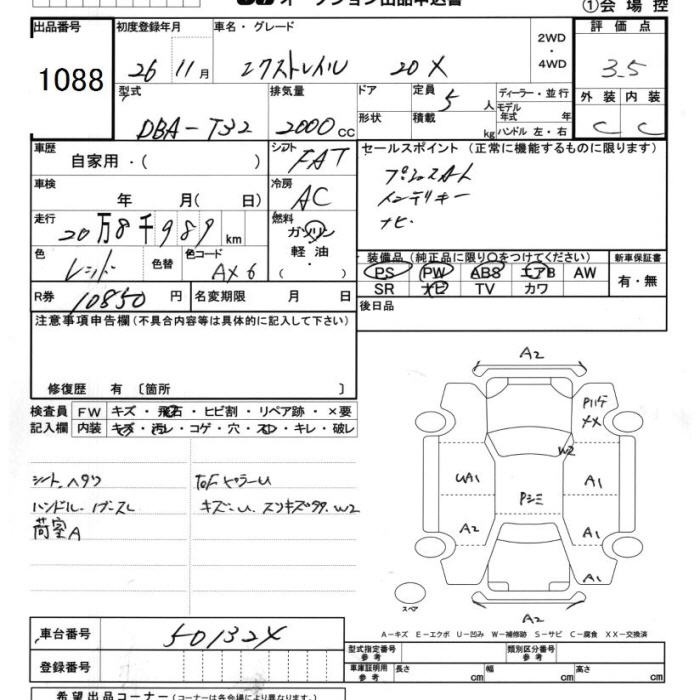 オークション出品申込書
①会場控
出品番号 初度登録年月 車名・グレード 2WD・4WD 評価点
1088 26 11月 エクストレイル 20X 3.5
型式 排気量 ドア 定員 5人 ディーラー・並行 外装 内装
DBA-T32 2000cc 形状 積載 kg モデル年式 年 ハンドル 左・右 C C
車歴 自家用・( ) シフト FAT セールスポイント (正常に機能するものに限ります)
車検 年 月( 日) 冷房 AC インテリキー
走行 20万8千989km 燃料 ガソリン・軽油・( ) ナビ
色 レッド 色替 色コード AX6 装備品(純正品に限り○をつけてください) 新車保証書
PS PW ABS エアB AW 有・無
SR ナビ TV カワ
R券 10850円 名変期限 月 日 後日品
注意事項申告欄(不具合内容等は具体的に記入して下さい)
修復歴 有 〔箇所 〕
検査員 FW キズ・飛石・ヒビ割・リペア跡・×要
記入欄 内装 キズ・汚レ・コゲ・穴・スレ・キレ・破レ
シートヘタリ
荷室A
A2
W2
UA1 A1
Pシミ
A2 A1
A1
スペア
A2
A-キズ E-エクボ U-凹み W-補修跡 S-サビ C-腐食 XX-交換済
車台番号 501324
登録番号
型式指定番号 参考 類別区分番号 参考
車庫証明用 参考 長さ cm 幅 cm 高さ cm
希望出品コーナー(コーナーは各会場により異なります。)